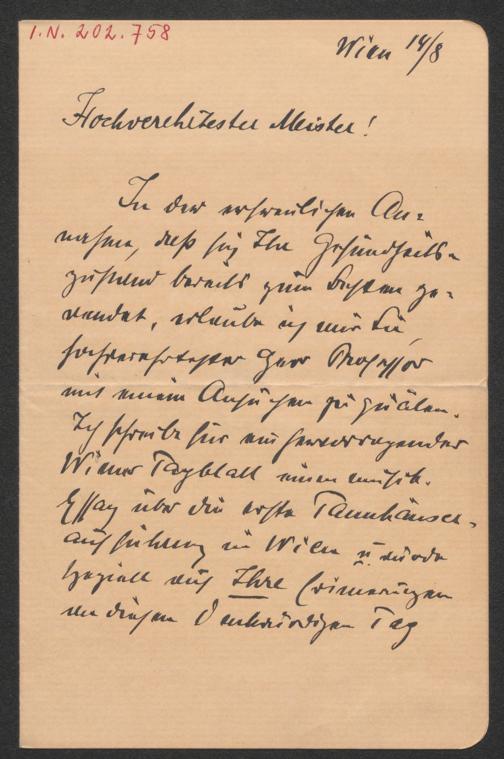 I.N. 202.758
Wien 14/8
Hochverehrtester Meister!
In der erfreulichen An=
nahme, daß sich Ihr Gesundheits=
zustand bereits zum Besten ge=
wendet, erlaube ich mir Sie,
hochverehrtester Herr Professor
mit einem Ansuchen zu quälen.
Ich schreibe für ein hervorragendes
Wiener Tagblatt einen musik.
Essay über die erste Tannhäuser=
aufführung in Wien u. würde
speziell auf Ihre Erinnerungen
an diesen denkwürdigen Tag